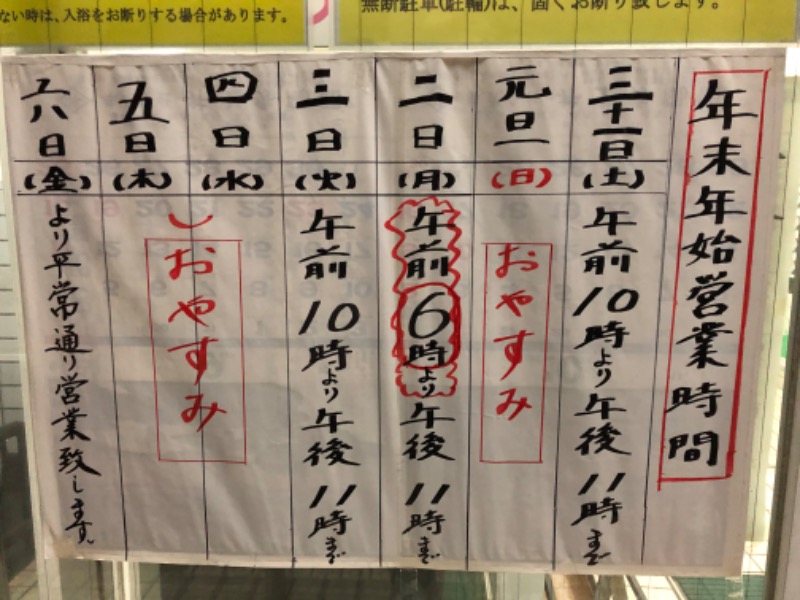 ない時は、入浴をお断りする場合があります。
無断駐車(駐輪)は、固くお断り致します。
年末年始営業時間
三十一日
(土)
午前10時より午後11時まで
元旦
(日)
おやすみ
二日
(月)
午前6時より午後11時まで
三日
(火)
午前10時より午後11時まで
四日
(水)
五日
(木)
おやすみ
六日
(金)
より平常通り営業致します。